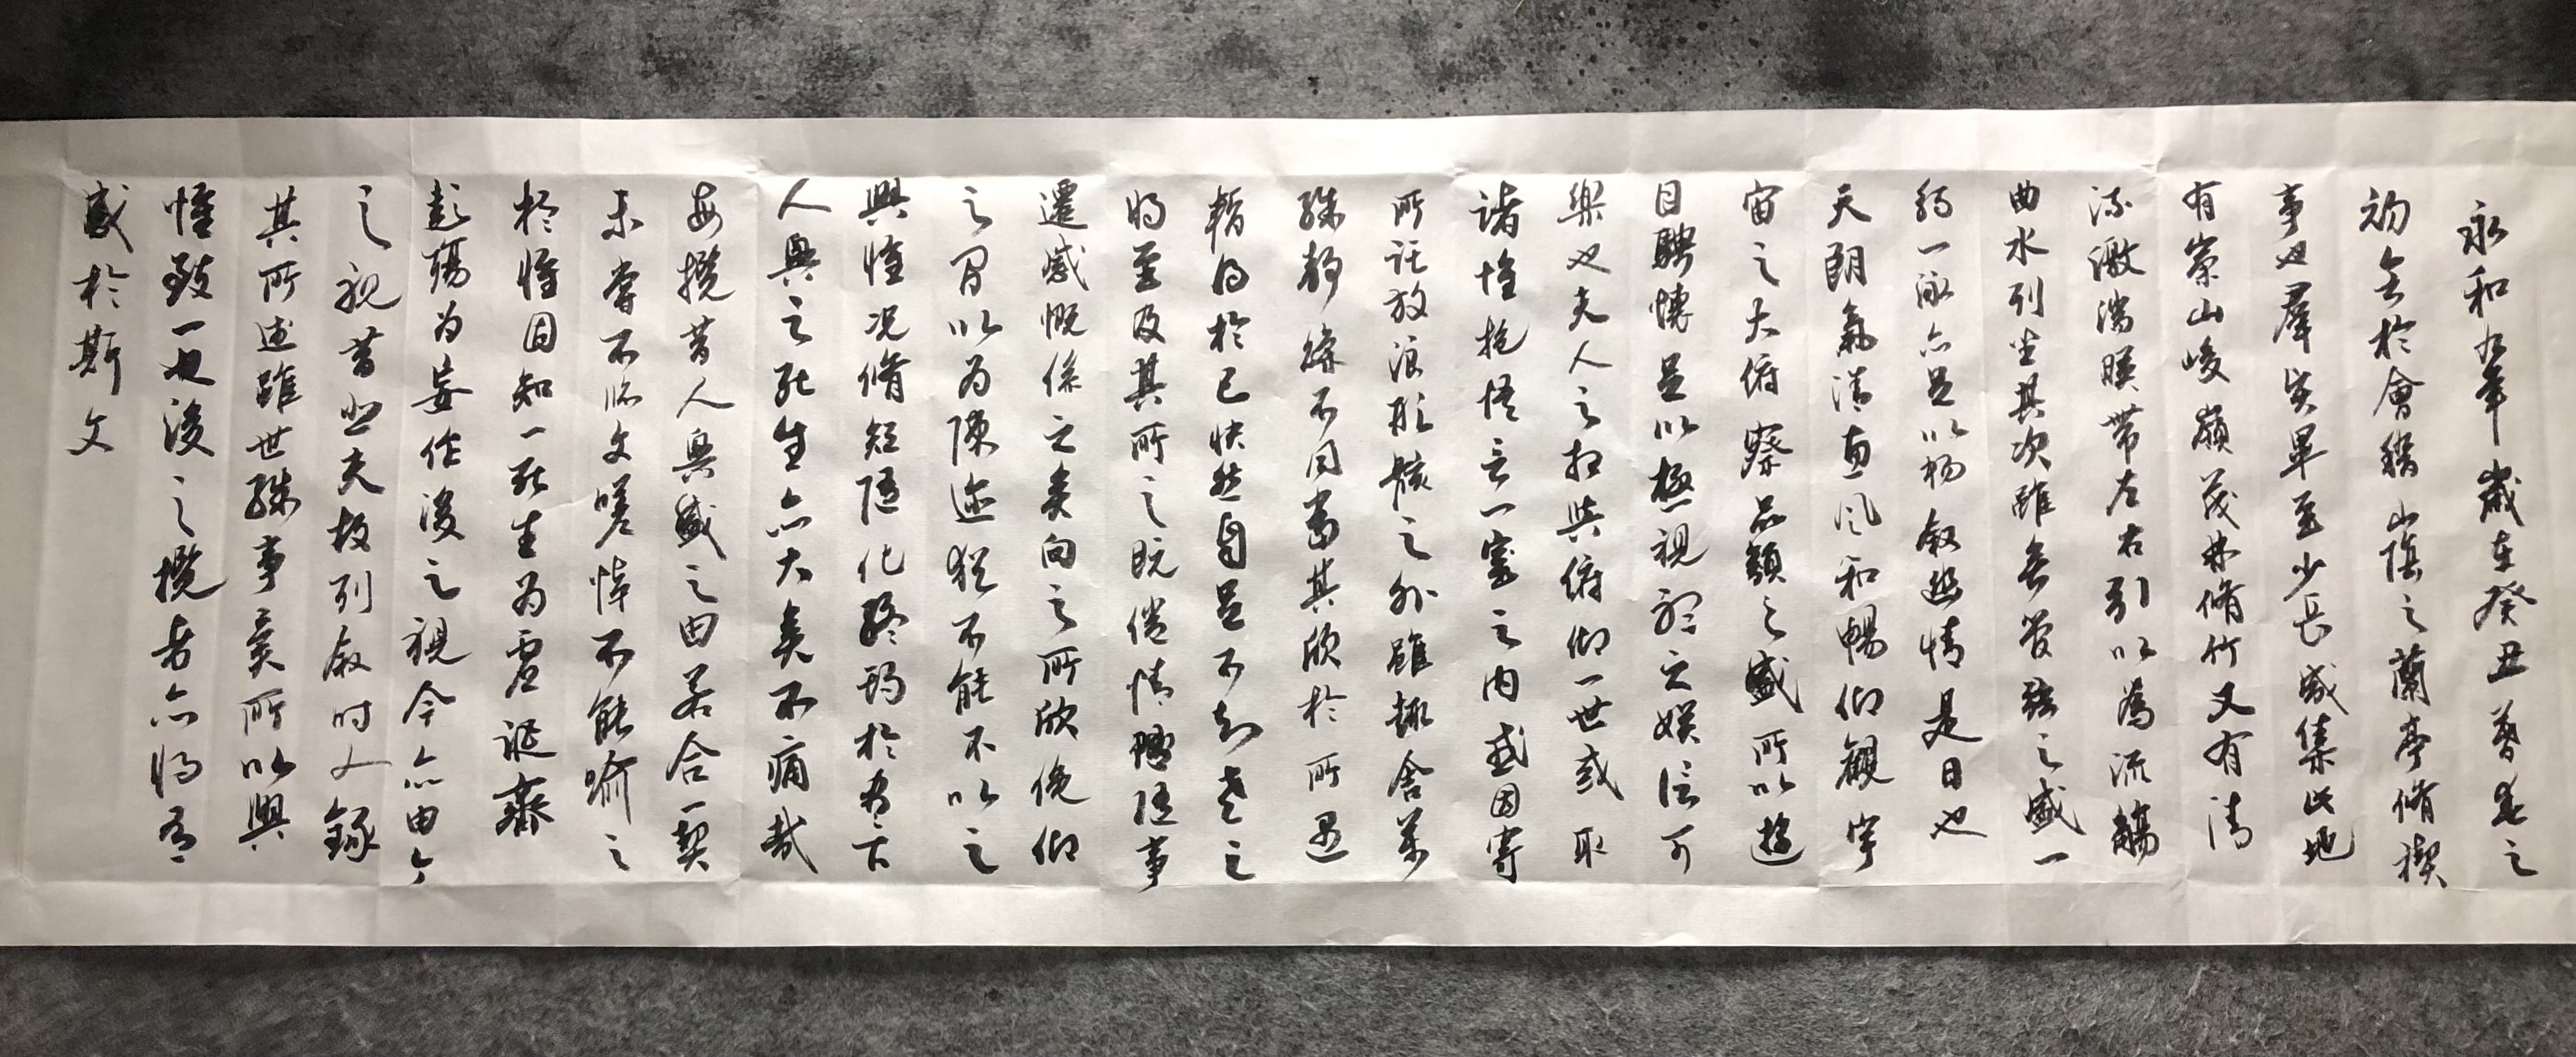 永和九年歲在癸丑暮春之
初會於會稽山陰之蘭亭脩禊
事也羣賢畢至少長咸集此地
有崇山峻嶺茂林脩竹又有清
流激湍暎帶左右引以為流觴
曲水列坐其次雖無管弦之盛一
觴一詠亦足以暢叙幽情是日也
天朗氣清惠風和暢仰觀宇
宙之大俯察品類之盛所以遊
目騁懷足以極視聽之娛信可
樂也夫人之相與俯仰一世或取
諸懷抱悟言一室之內或因寄
所託放浪形骸之外雖趣舍萬
殊靜躁不同當其欣於所遇
暫得於己快然自足不知老之
將至及其所之既倦情隨事
遷感慨係之矣向之所欣俛仰
之間以為陳迹猶不能不以之
興懷况脩短隨化終期於盡古
人與之死生亦大矣不痛哉
每攬昔人興感之由若合一契
未嘗不臨文嗟悼不能喻之
於懷固知一死生為虛誕齊
彭殤為妄作後之視今亦由今
之視昔悲夫故列叙時人錄
其所述雖世殊事異所以興
懷致一也後之攬者亦將有
感於斯文